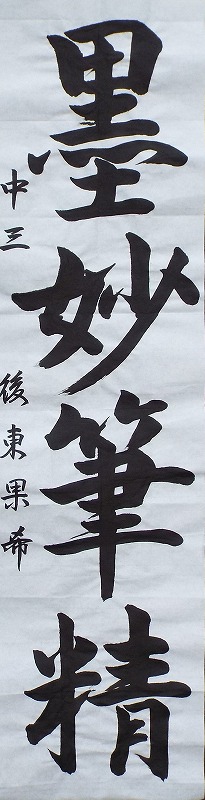 墨妙筆精
中三 後東果希